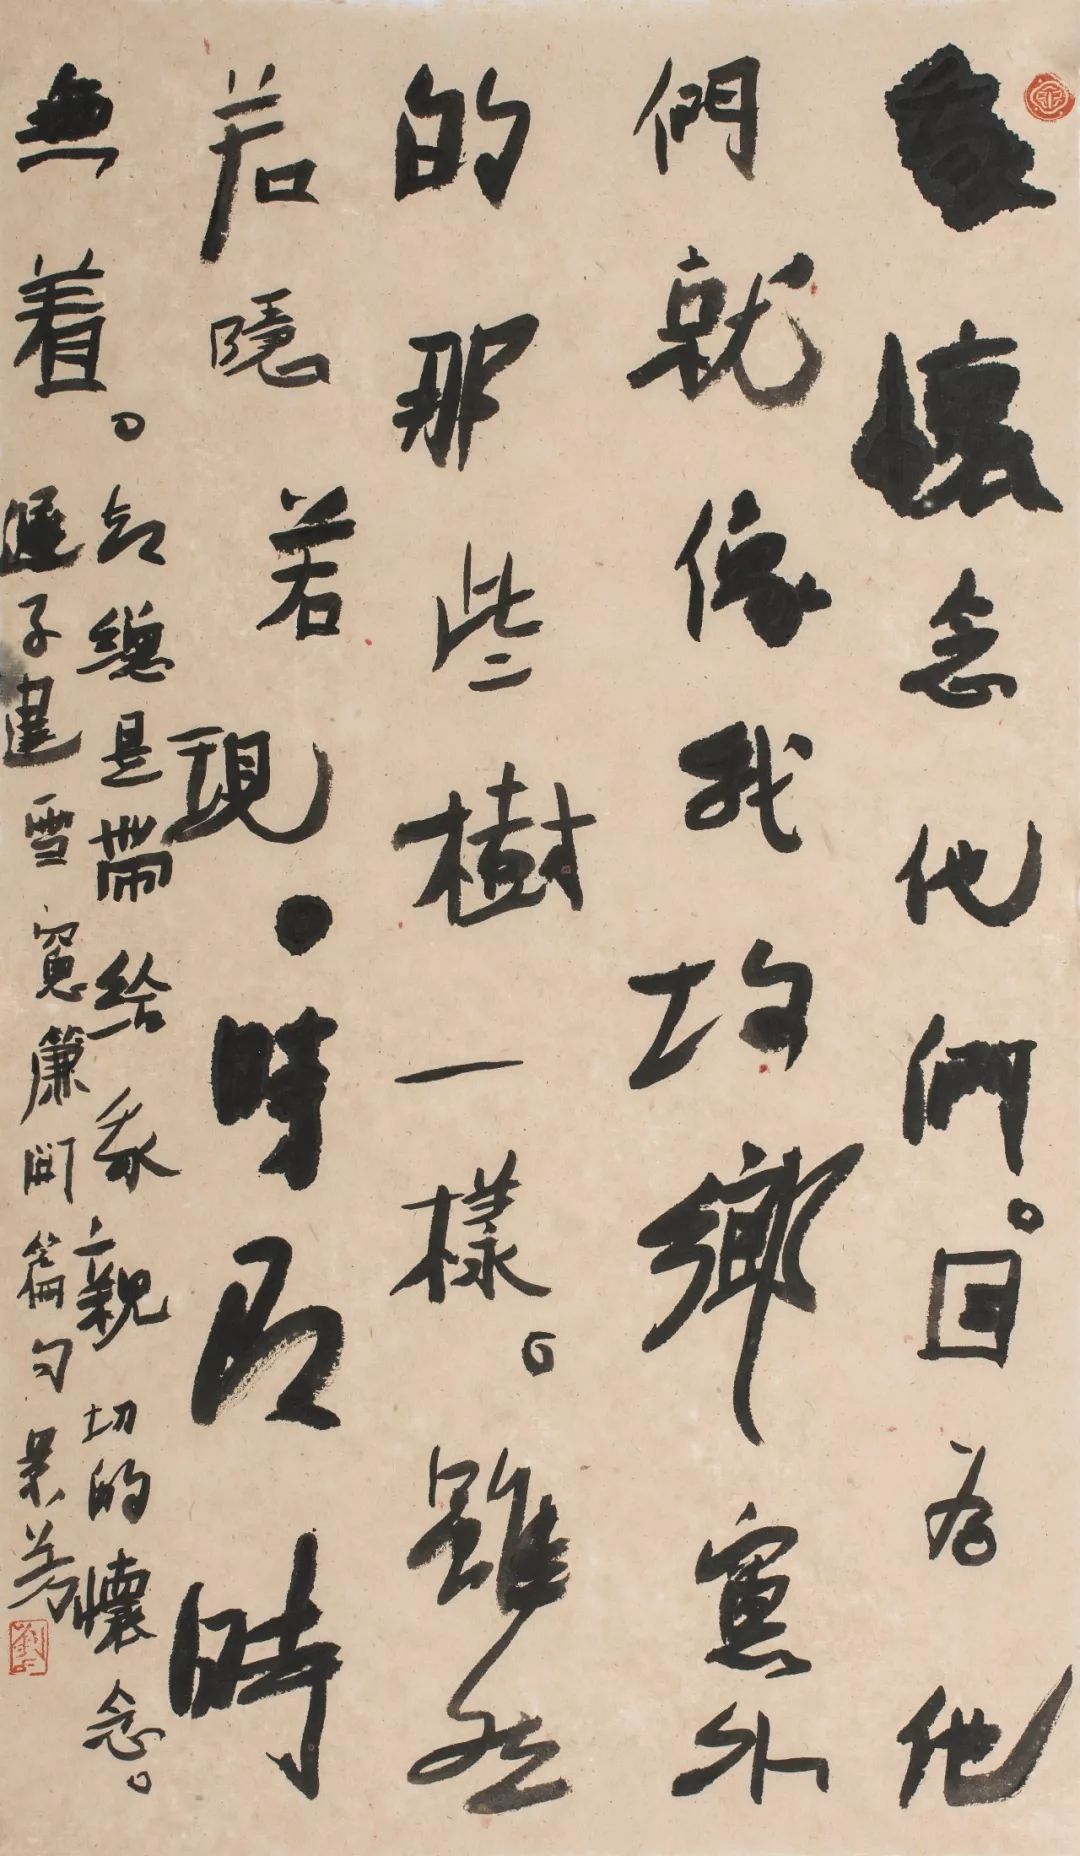 我懷念他們。因为他
們就像我故鄉窻外
的那些樹一樣。雖然
若隱若現，時有時
無着。
却總是帶給我親切的懷念。
遲子建雪窻簾開篇句景芳